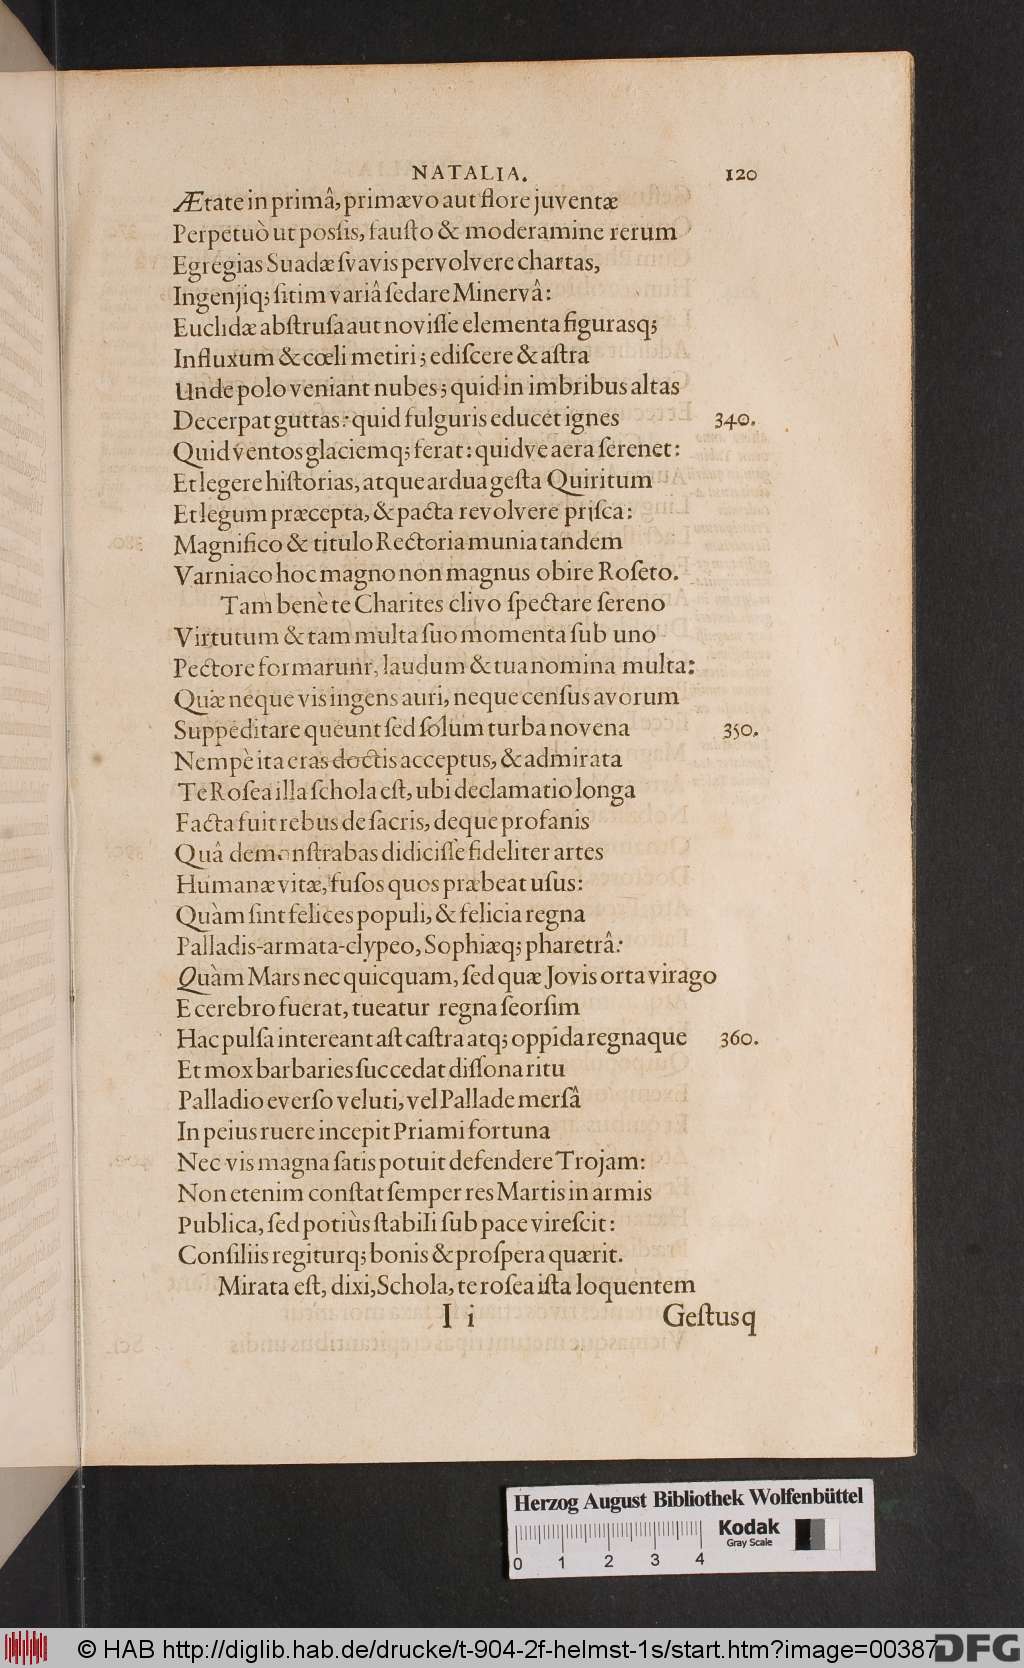 NATALIA. 120
Ætate in primâ, primævo aut flore juventæ
Perpetuò ut poſsis, fauſto & moderamine rerum
Egregias Suadæ ſvavis pervolvere chartas,
Ingenjiq; ſitim variâ ſedare Minervâ:
Euclidæ abſtruſa aut noviſſe elementa figurasq;
Influxum & cœli metiri; ediſcere & aſtra
Unde polo veniant nubes; quid in imbribus altas
Decerpat guttas: quid fulguris educet ignes 340.
Quid ventos glaciemq; ferat: quidve aera ſerenet:
Et legere hiſtorias, atque ardua geſta Quiritum
Et legum præcepta, & pacta revolvere priſca:
Magnifico & titulo Rectoria munia tandem
Varniaco hoc magno non magnus obire Roſeto.
Tam benè te Charites clivo ſpectare ſereno
Virtutum & tam multa ſuo momenta ſub uno
Pectore formarunt, laudum & tua nomina multa:
Quæ neque vis ingens auri, neque cenſus avorum
Suppeditare queunt ſed ſolum turba novena 350.
Nempè ita eras doctis acceptus, & admirata
Te Roſea illa ſchola eſt, ubi declamatio longa
Facta fuit rebus de ſacris, deque profanis
Quâ demonſtrabas didiciſſe fideliter artes
Humanæ vitæ, fuſos quos præbeat uſus:
Quàm ſint felices populi, & felicia regna
Palladis-armata-clypeo, Sophiæq; pharetrâ:
Quàm Mars nec quicquam, ſed quæ Jovis orta virago
E cerebro fuerat, tueatur regna ſeorſim
Hac pulſa intereant aſt caſtra atq; oppida regnaque 360.
Et mox barbaries ſuccedat diſſona ritu
Palladio everſo veluti, vel Pallade merſâ
In peius ruere incepit Priami fortuna
Nec vis magna ſatis potuit defendere Trojam:
Non etenim conſtat ſemper res Martis in armis
Publica, ſed potiùs ſtabili ſub pace vireſcit:
Conſiliis regiturq; bonis & proſpera quærit.
Mirata eſt, dixi, Schola, te roſea iſta loquentem
I i Geſtusq
Herzog August Bibliothek Wolfenbüttel
Kodak
Gray Scale
0 1 2 3 4
© HAB http://diglib.hab.de/drucke/t-904-2f-helmst-1s/start.htm?image=00387
DFG